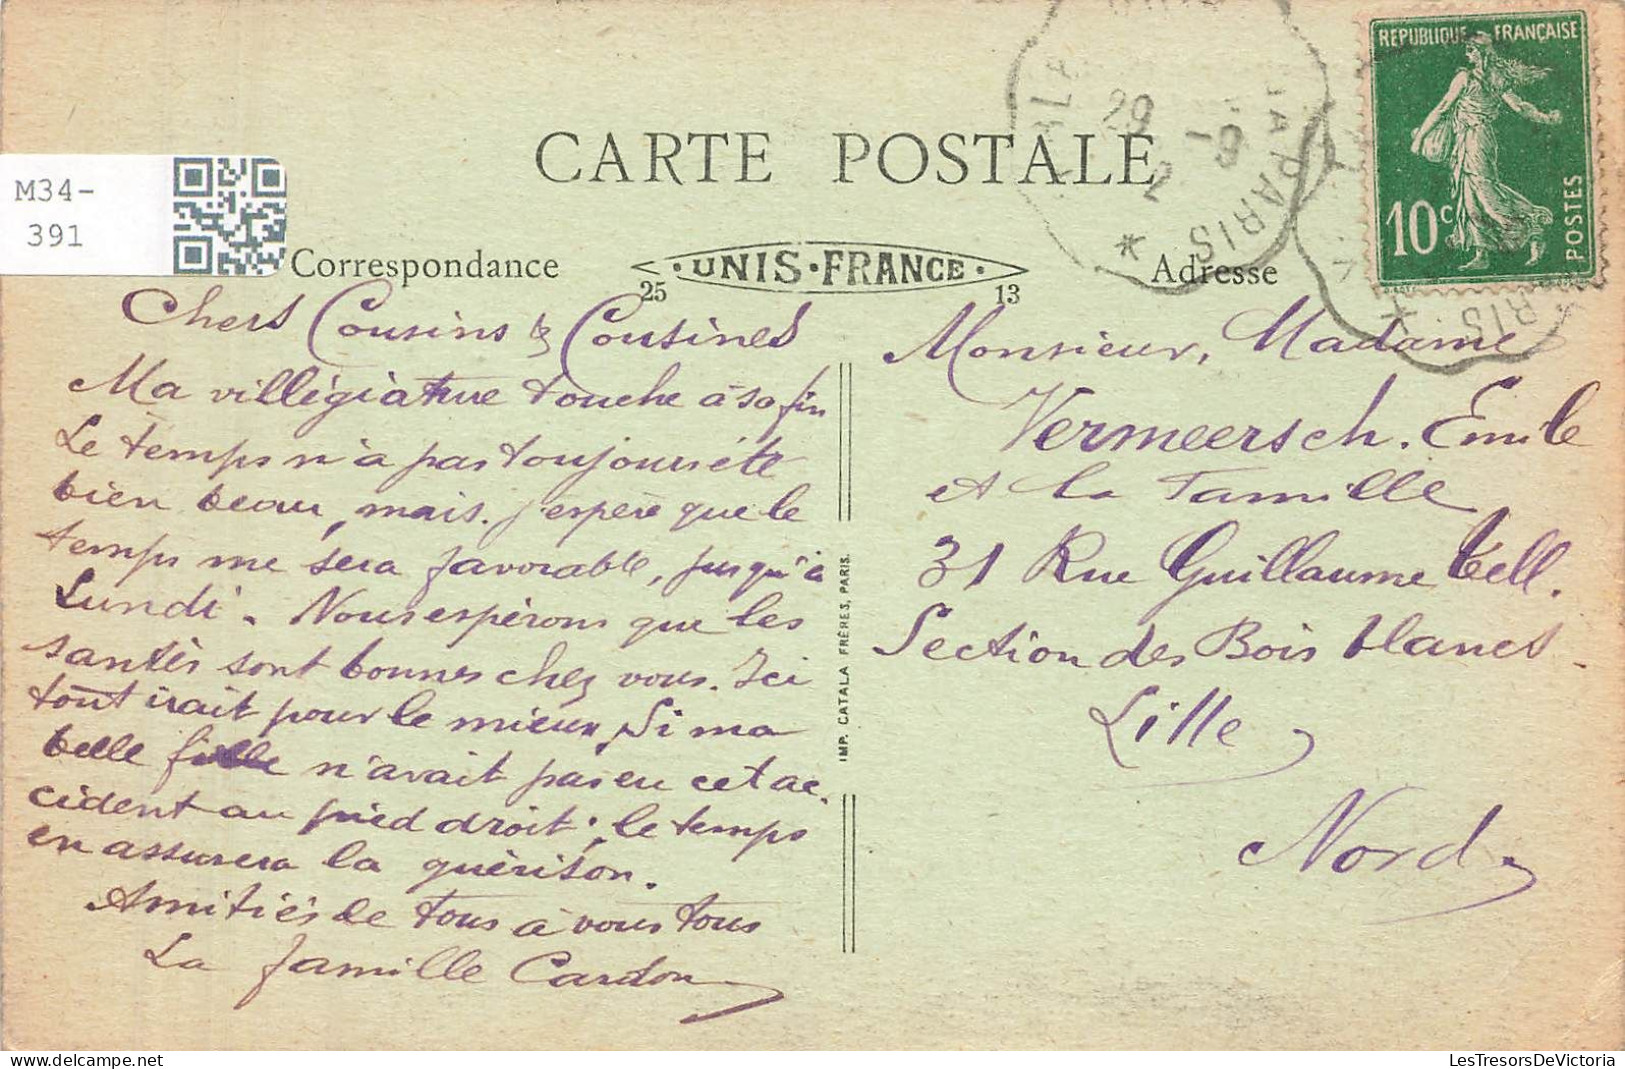 REPUBLIQUE FRANÇAISE
10c
POSTES
29
-9
2
PARIS
RIS
CARTE POSTALE
M34-
391
Correspondance
UNIS·FRANCE
25
13
Adresse
Chers Cousins & Cousines
Ma villégiature touche à sa fin
Le temps n'a pas toujours été
bien beau, mais. j'espère que le
temps me sera favorable, jusqu'à
Lundi. Nous espérons que les
santés sont bonnes chez vous. Ici
tout irait pour le mieux, Si ma
belle fille n'avait pas eu cet ac.
cident au pied droit; le temps
en assurera la guérison.
Amitiés de tous à vous tous
La famille Cardon
IMP. CATALA FRÈRES, PARIS.
Monsieur, Madame
Vermeersch. Emile
et la Famille
31 Rue Guillaume tell.
Section des Bois blancs.
Lille
Nord
LesTresorsDeVictoria